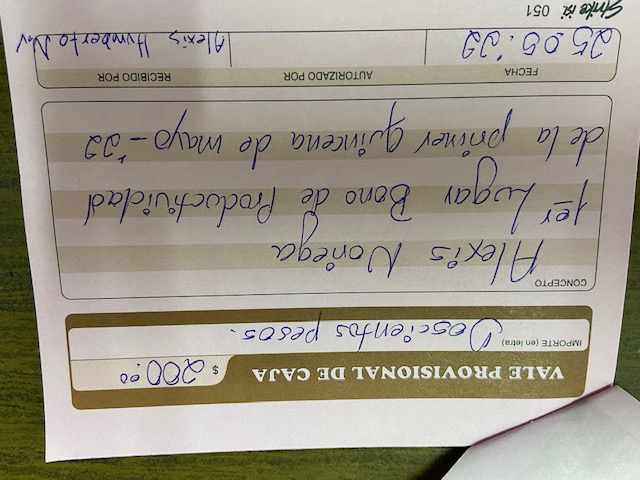 VALE PROVISIONAL DE CAJA $ 200.00
IMPORTE (en letra) Doscientos pesos.
CONCEPTO
Alexis Noriega
1er Lugar Bono de Productividad
de la primer quincena de mayo - '22
FECHA AUTORIZADO POR RECIBIDO POR
25.05.'22 Alexis Humberto
051